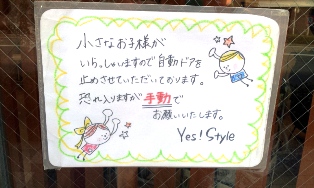 小さなお子様が
いらっしゃいますので自動ドアを
止めさせていただいております。
恐れ入りますが手動で
お願いいたします。
Yes! Style